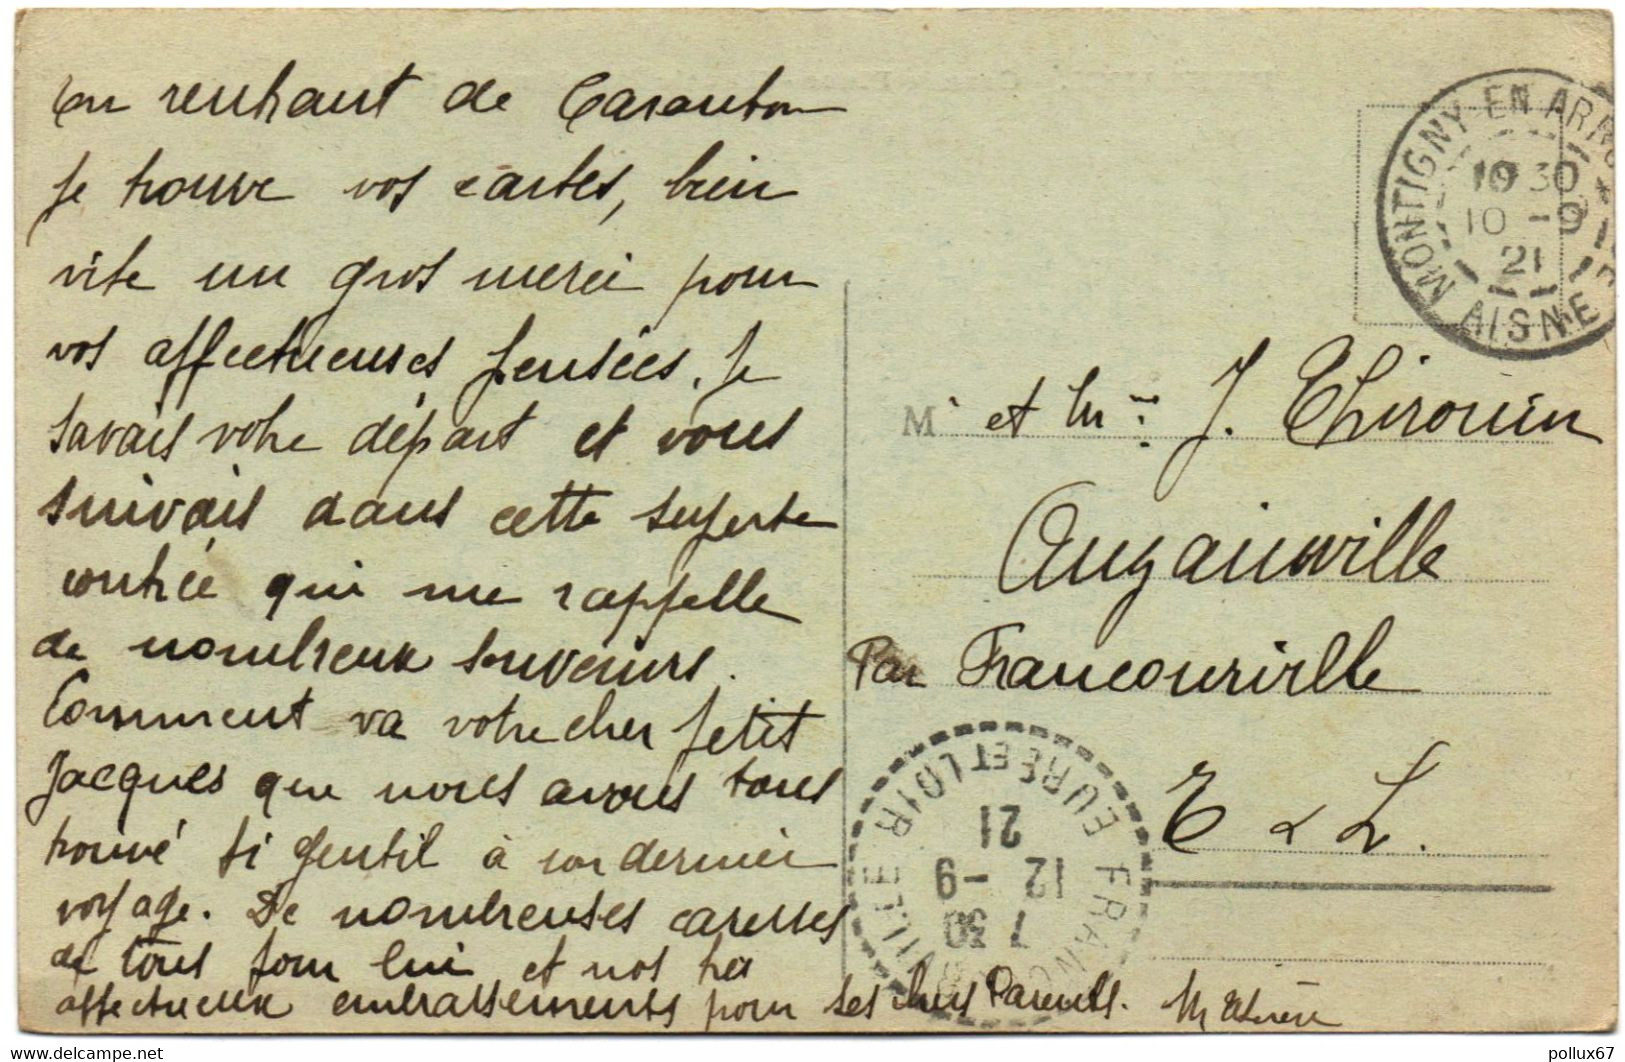 En rentrant de Carantom
je trouve vos cartes, bien
vite un gros merci pour
vos affectueuses pensées. Je
savais votre départ et vous
suivais dans cette superbe
contrée qui me rappelle
de nombreux souvenirs.
Comment va votre cher petit
Jacques que nous avons tous
trouvé si gentil à son dernier
voyage. De nombreuses caresses
de tous pour lui et nos tra
affectueux embrassements pour ses chers Parents.
MONTIGNY-EN-ARRO
AISNE
10 30
10 -9
21
Mr et Mme J. Thirouin
Augainville
Par Francourville
E & L.
EURE ET LOIR
7 30
12 -9
21
pollux67